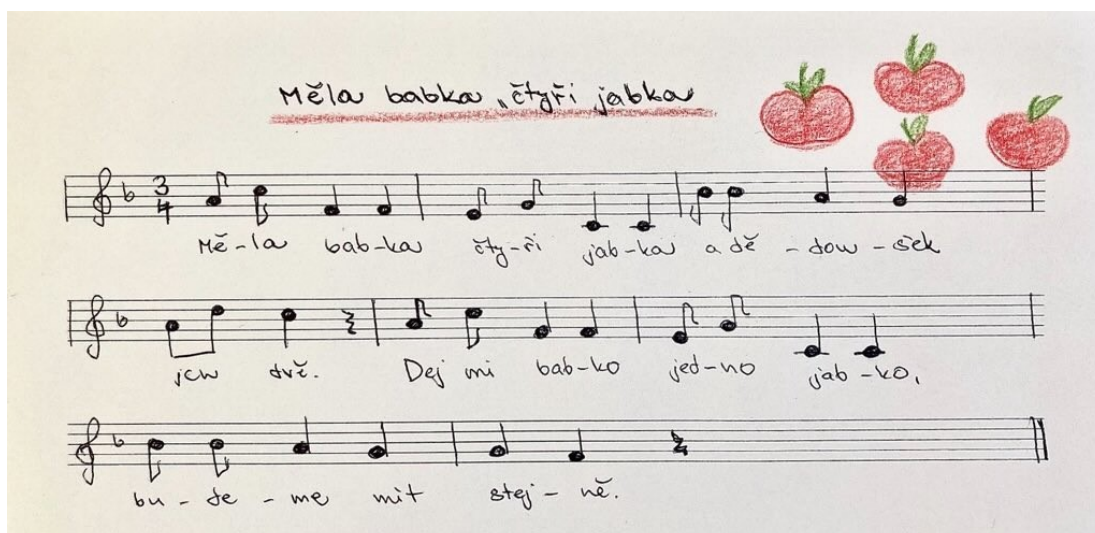 Měla babka čtyři jabka
3 4
Mě-la bab-ka čty-ři jab-ka a dě - dou - šek
jen dvě. Dej mi bab-ko jed-no jab-ko,
bu - de - me mít stej - ně.